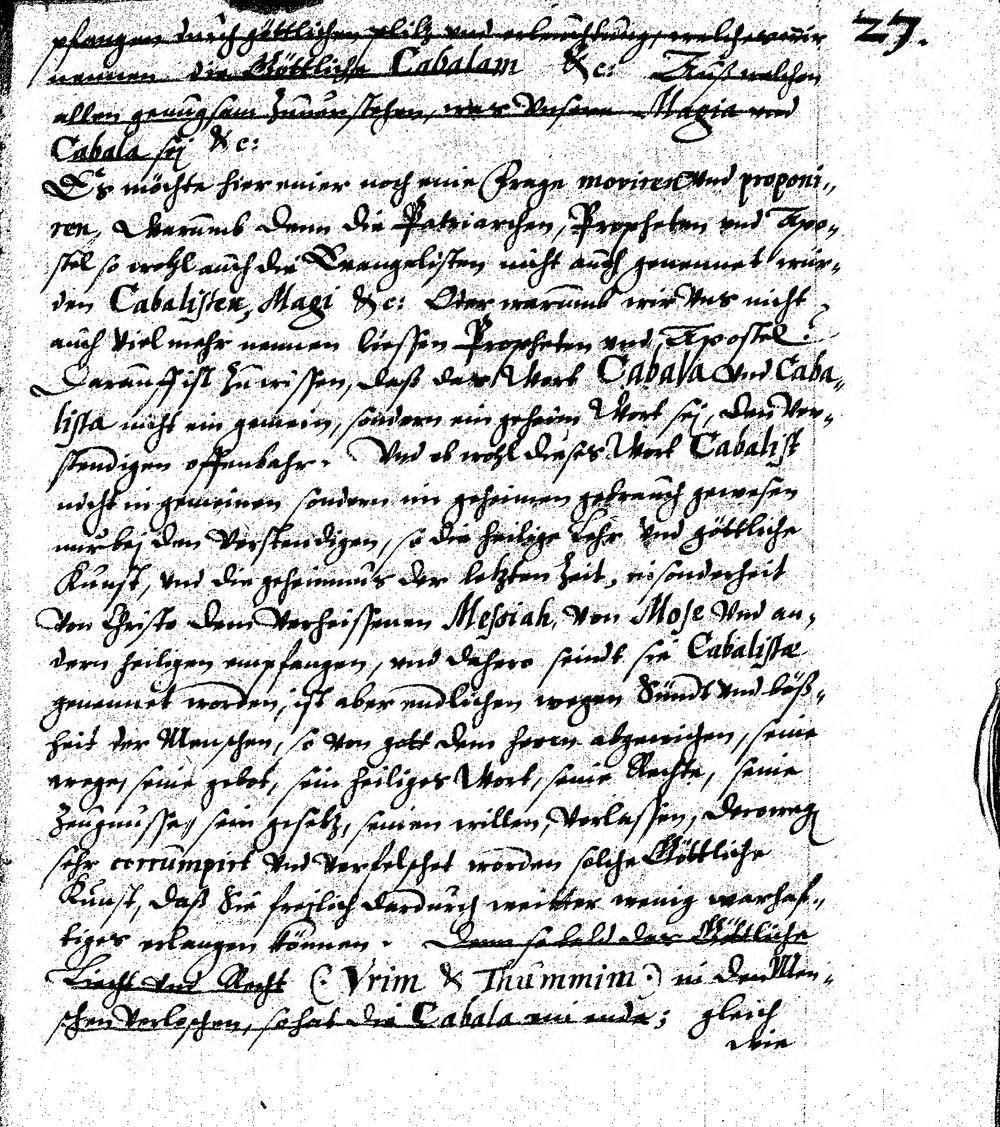 27.
pfangen durch göttlichen plitz und erleuchtung, welches wir
nennen die Göttliche Cabalam &c: Auß welchen
allen genugsam Zuuerstehen, was Unsere Magia und
Cabala sej &c:
Es möchte hier einer noch eine Frage moviren Und proponi„
ren, Warumb denn die Patriarchen, Propheten und Apo„
stel so wohl auch die Evangelisten nicht auch genennet wur„
den Cabalisten, Magi &c: Oder warumb wir Uns nicht
auch Viel mehr nennen liessen Propheten und Apostel?
Darauff ist Zu wissen, daß das Wort Cabala Und Caba„
lista nicht ein gemein, sondern ein geheim Wort sej, den Ver„
stendigen offenbahr. Und ob wohl dieses Wort Cabalist
nicht in gemeinen sondern im geheimen gebrauch gewesen
nur bej den Verstendigen, so die heilige Lehr Und göttliche
Kunst, und die geheimnus der letzten Zeit, insonderheit
Von Christo dem Verheissenen Messiah, Von Mose Und an„
dern heiligen empfangen, und dahero seindt sie Cabalistæ
genennet worden, ist aber endlichen wegen Sündt Und böß„
heit der Menschen, so Von gott dem herrn abgewichen, seine
wege, seine gebot, sein heiliges Wort, seine Rechte, seine
Zeugnusse, sein gesetz, seinen willen, Verlassen, deroweg
sehr corrumpirt Und Verfelschet worden solche Göttliche
Kunst, daß Sie freilich dardurch weitter wenig warhaf„
tiges erlangen können. Denn so bald das Göttliche
Liecht und Recht (: Vrim & Thummim :) in den Men„
schen Verloschen, so hat die Cabala ein ende; gleich
wie